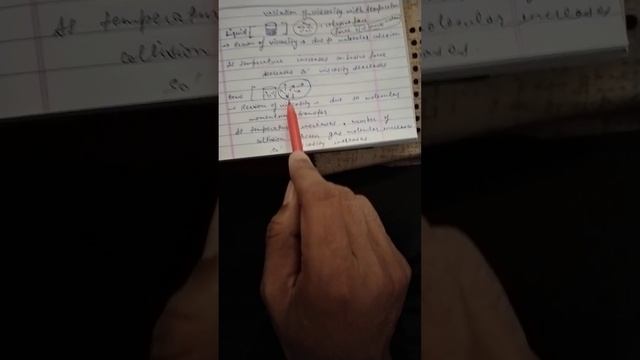 variation of viscosity with temperature
Liquid
→ Reason of viscosity → due to molecular
At temperature increases cohesive force
decreases so viscosity decreases
→ Reason of viscosity → due to molecular
momentum transfer
At temperature increases, number of
collision between gas molecular increases
so viscosity increases
At temperatur
collision
so
molecular increases
ases